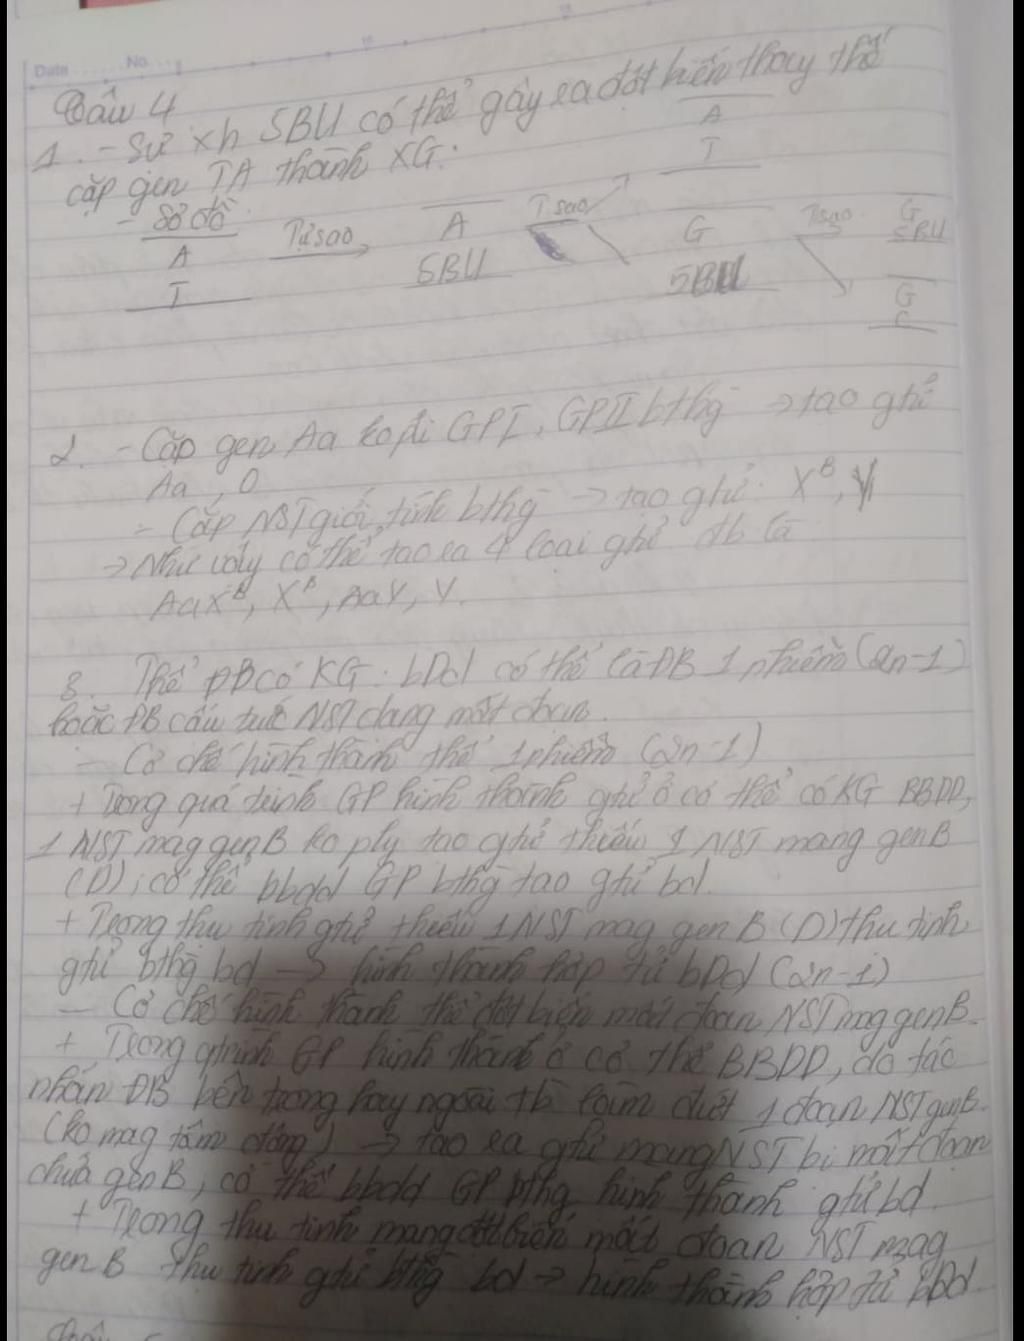 Date ...... No. ....
Câu 4
1. - Sự xh 5BU có thể gây ra đột biến thay thế
cặp gen TA thành XG.
- Sơ đồ
A
T
Tự sao
A
5BU
T sao
A
T
G
5BU
T sao
G
5BU
G
C
2. - Cặp gen Aa ko pli GPI, GPII bthg → tạo gtử
Aa, O
- Cặp NST giới tính bthg → tạo gtử: X^B, Y
→ Như vậy có thể tạo ra 4 loại gtử đb là
AaX^B, X^B, AaY, Y.
3. Thể ĐB có KG: bDd có thể là ĐB 1 nhiễm (2n-1)
hoặc ĐB cấu trúc NST dạng mất đoạn.
- Cơ chế hình thành thể 1 nhiễm (2n-1)
+ Trong quá trình GP hình thành gtử ở cơ thể có KG BBDD,
1 NST mag gen B ko ply tạo gtử thiếu 1 NST mang gen B
(D), cơ thể bbdd GP bthg tạo gtử bd.
+ Trong thụ tinh gtử thiếu 1 NST mag gen B (D) thụ tinh
gtử bthg bd → hình thành hợp tử bDd (2n-1)
- Cơ chế hình thành thể đột biến mất đoạn NST mag gen B.
+ Trong qtrình GP hình thành ở cơ thể BBDD, do tác
nhân ĐB bên trong hay ngoài tb làm đứt 1 đoạn NST gen B.
(ko mag tâm động) → tạo ra gtử mang NST bị mất đoạn
chứa gen B, cơ thể bbdd GP bthg hình thành gtử bd.
+ Trong thụ tinh mang đột biến mất đoạn NST mag
gen B thụ tinh gtử bthg bd → hình thành hợp tử bDd.